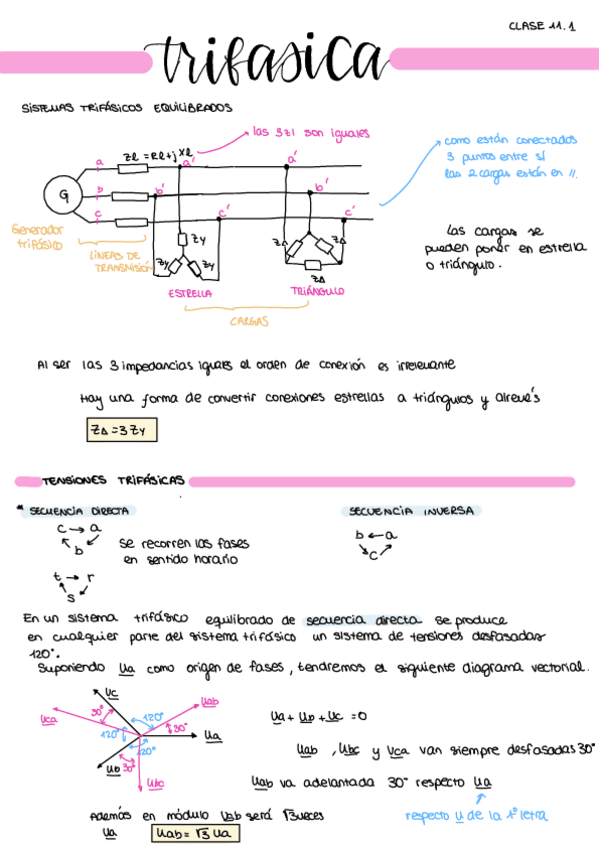 CLASE 11.1
trifasica
SISTEMAS TRIFÁSICOS EQUILIBRADOS
las 3 Zl son iguales
como están conectados
3 puntos entre sí
las 2 cargas están en //.
Zl = Rl + j Xl
a
a'
a'
G
b
b'
b'
c
c'
c'
Generador
trifásico
LÍNEAS DE
TRANSMISIÓN
ZY
ZY
ZY
ZΔ
ZΔ
ZΔ
ESTRELLA
TRIÁNGULO
CARGAS
Las cargas se
pueden poner en estrella
o triángulo.
Al ser las 3 impedancias iguales el orden de conexión es irrelevante
Hay una forma de convertir conexiones estrellas a triángulos y alrevés
ZΔ = 3 ZY
TENSIONES TRIFÁSICAS
* SECUENCIA DIRECTA
SECUENCIA INVERSA
c → a
b
b ← a
c
se recorren las fases
en sentido horario
t → r
s
En un sistema trifásico equilibrado de secuencia directa se produce
en cualquier parte del sistema trifásico un sistema de tensiones desfasadas
120°.
Suponiendo Ua como origen de fases, tendremos el siguiente diagrama vectorial.
Uc
Uab
Uca
30°
120°
30°
120°
Ua
120°
Ub
30°
Ubc
Ua + Ub + Uc = 0
Uab, Ubc y Uca van siempre desfasadas 30°
Uab va adelantada 30° respecto Ua
respecto U de la 1ª letra
Además en módulo Uab será √3 veces
Ua
Uab = √3 Ua